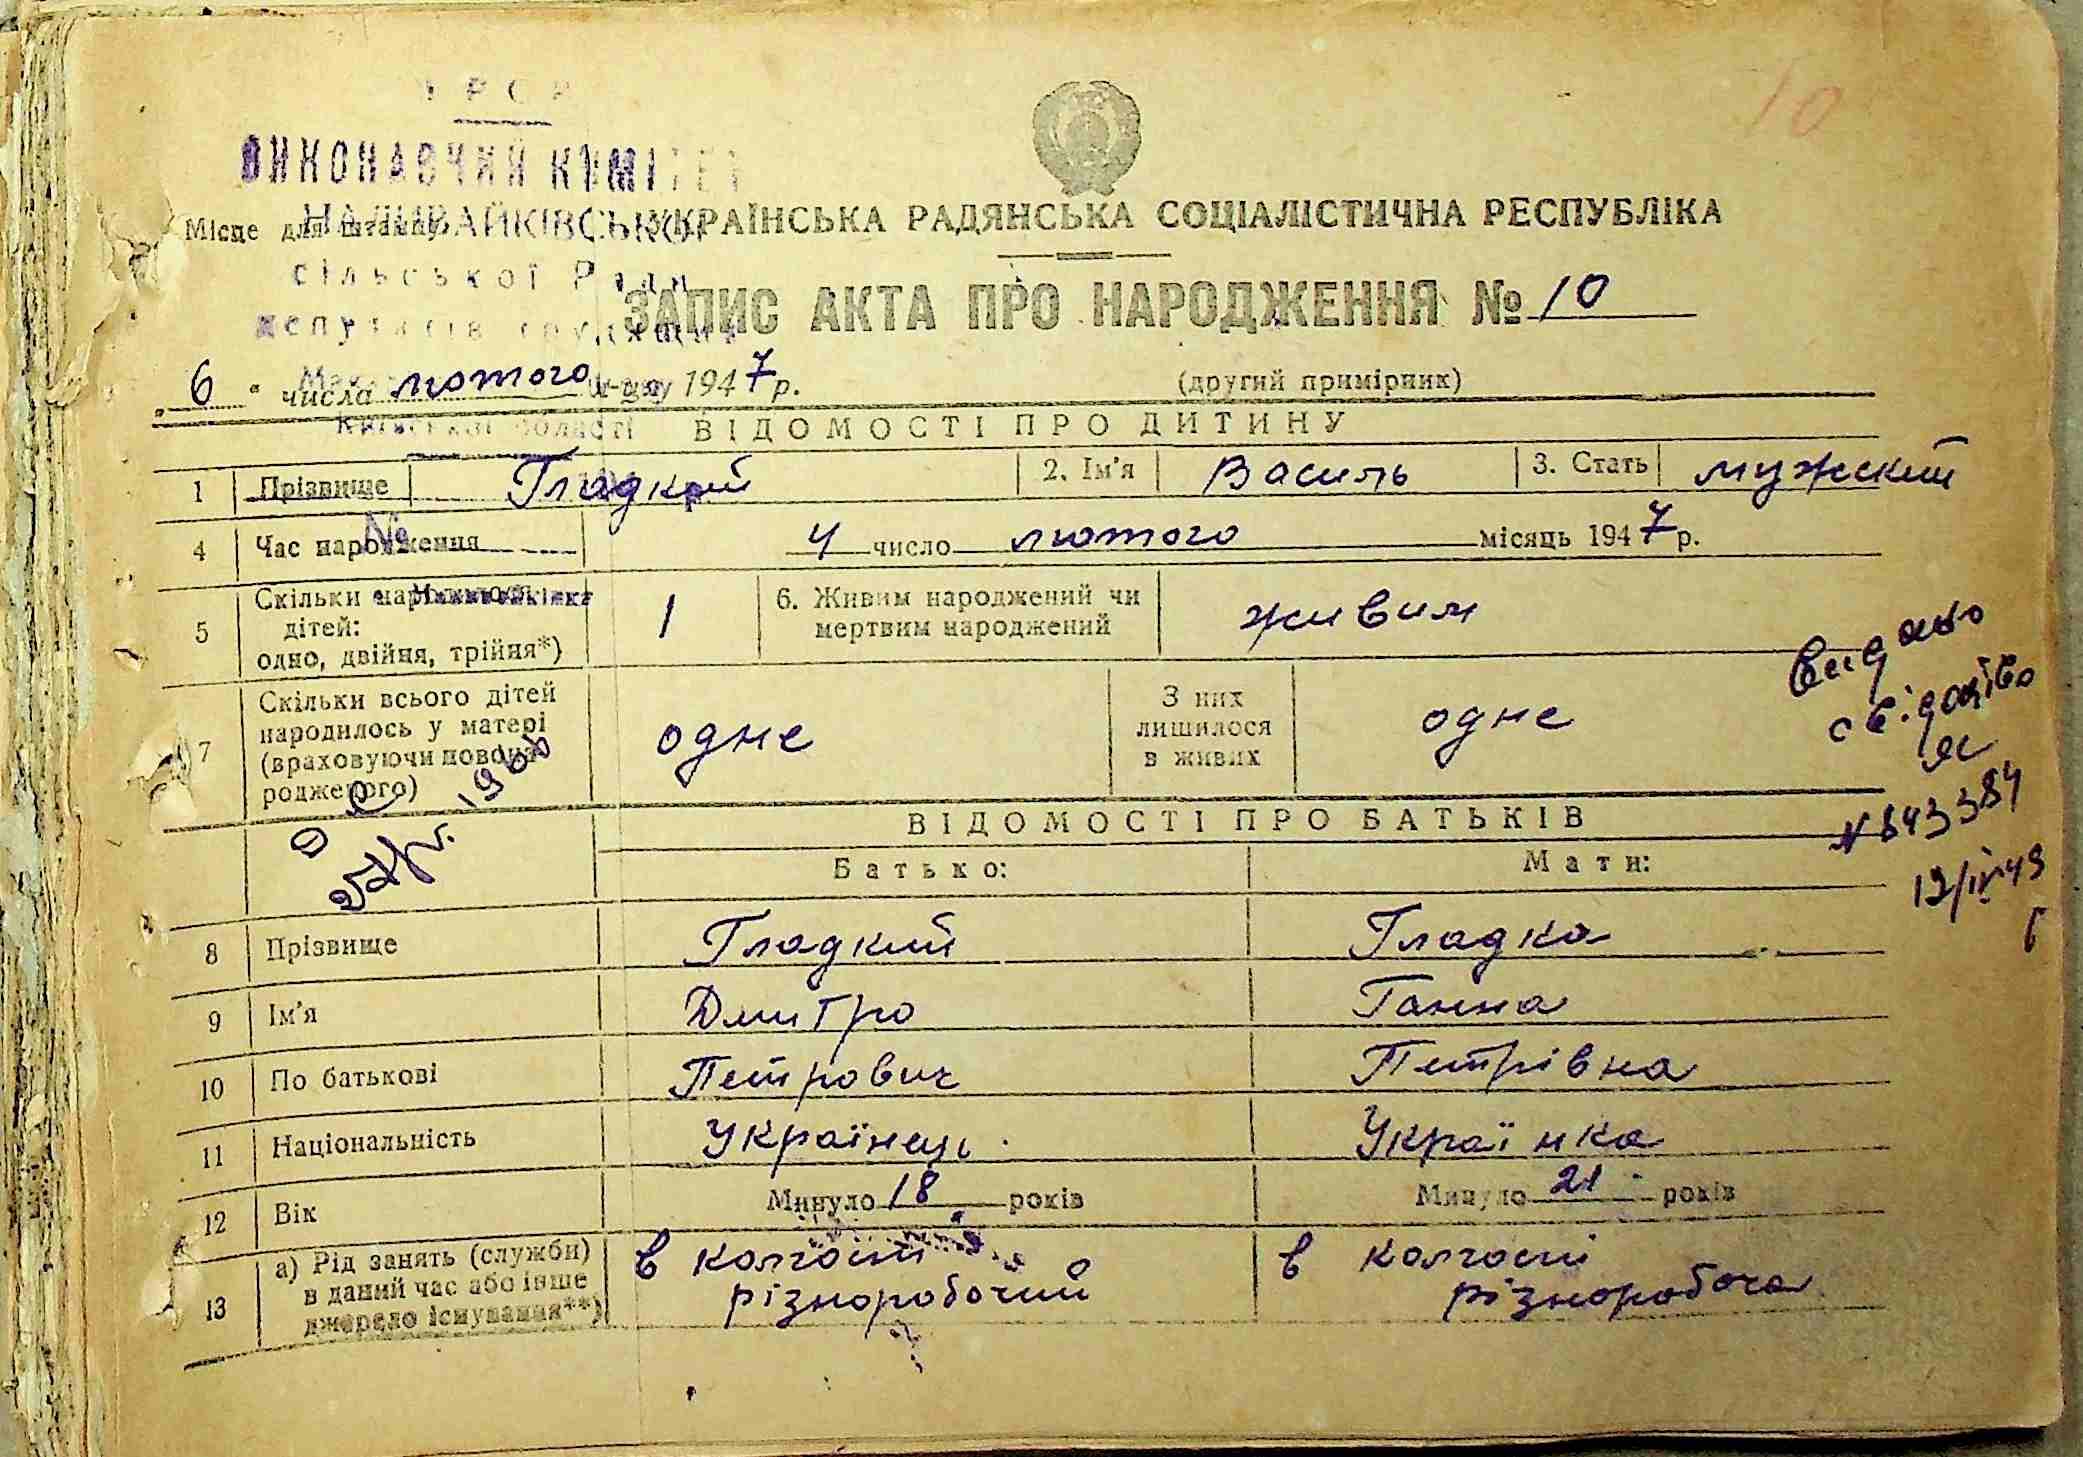 10
УРСР
ВИКОНАВЧИЙ КОМІТЕТ
Місце для штампу
НАЛИВАЙКІВСЬКОЇ
УКРАЇНСЬКА РАДЯНСЬКА СОЦІАЛІСТИЧНА РЕСПУБЛІКА
сільської Ради
депутатів трудящих
ЗАПИС АКТА ПРО НАРОДЖЕННЯ № 10
„ 6 " числа лютого м-ця 1947 р.
(другий примірник)
Київської області
ВІДОМОСТІ ПРО ДИТИНУ
1 Прізвище Гладкий 2. Ім'я Василь 3. Стать мужский
№
4 Час народження 4 число лютого місяць 1947 р.
5 Скільки народилося дітей: одно, двійня, трійня*) 1 6. Живим народжений чи мертвим народжений живим
7 Скільки всього дітей народилось у матері (враховуючи новонародженого) одне З них лишилося в живих одне
Видано
свідоцтво
№ 843384
ВІДОМОСТІ ПРО БАТЬКІВ
Батько: Мати:
8 Прізвище Гладкий Гладка
9 Ім'я Дмитро Ганна
10 По батькові Петрович Петрівна
11 Національність Українець Українка
12 Вік Минуло 18 років Минуло 21 років
13 а) Рід занять (служби) в даний час або інше джерело існування**) в колгоспі різноробочий в колгоспі різноробоча